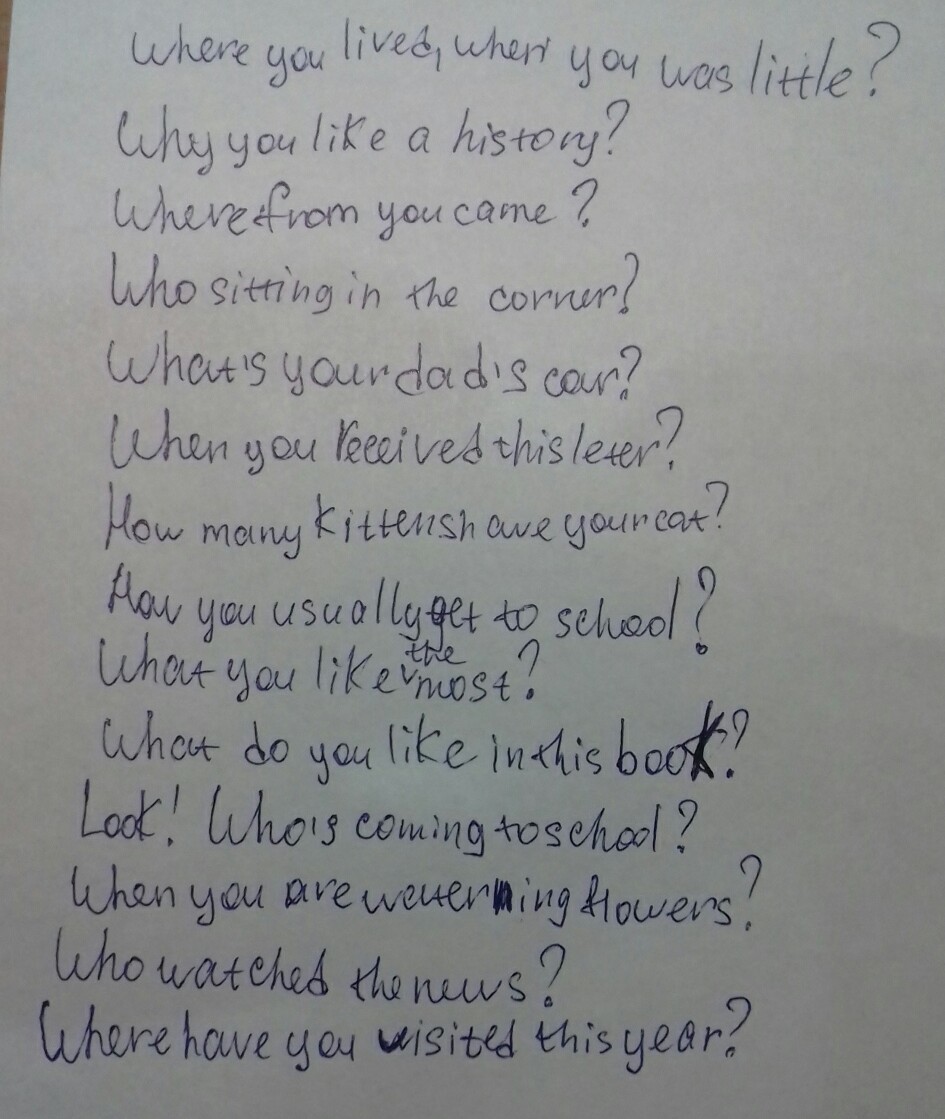 Where you lived, when you was little?
Why you like a history?
Where from you came?
Who sitting in the corner?
What's your dad's car?
When you received this leter?
How many kittens have your cat?
How you usually get to school?
What you like the most?
What do you like in this book?
Look! Who's coming to school?
When you are waterning flowers?
Who watched the news?
Where have you visited this year?